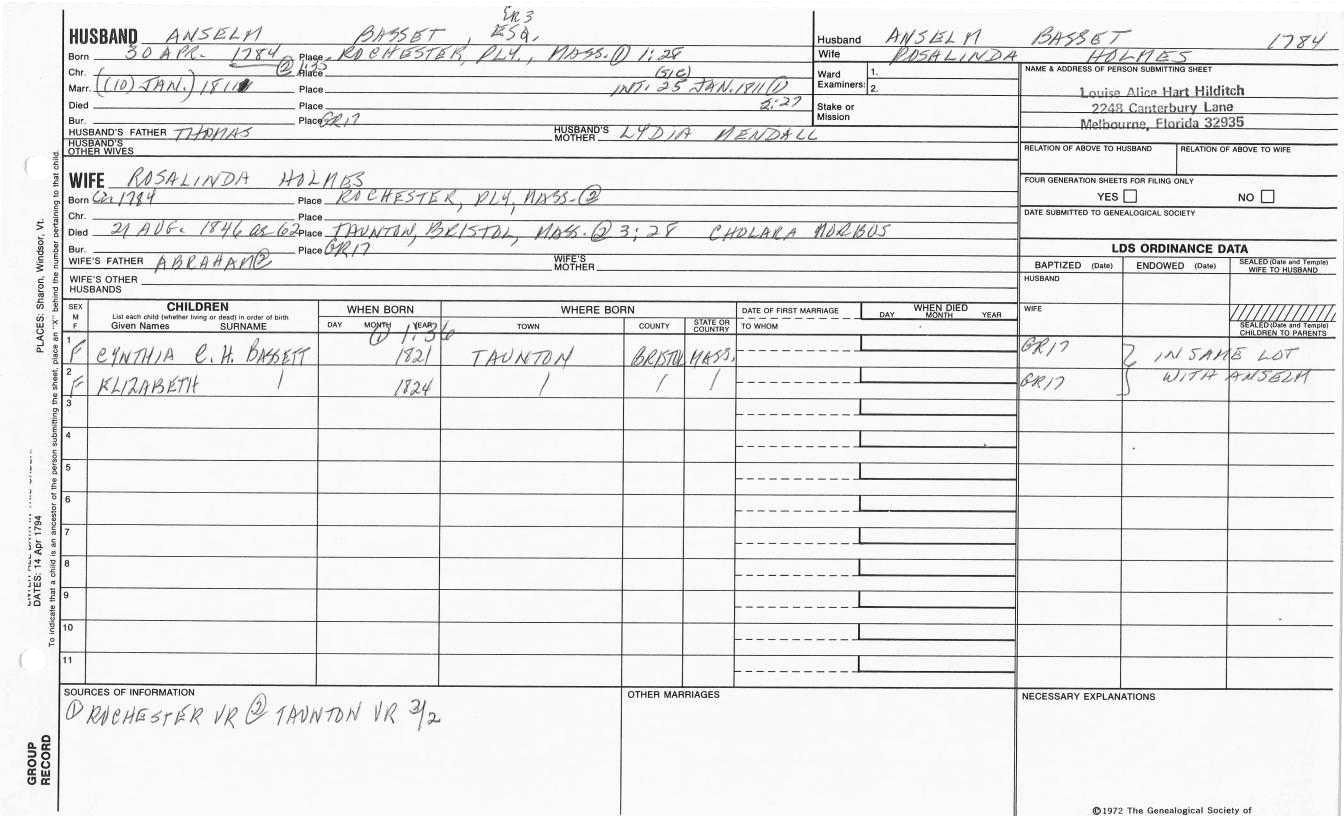 GR3
HUSBAND ANSELM BASSET, ESQ.
Born 30 APR. 1784 Place ROCHESTER, PLY., MASS. ① 1:28
② 1:35
Chr. Place (SIC)
Marr. ((10) JAN.) 1811 Place INT: 25 JAN. 1811 ①
2:27
Died Place
Bur. Place GR17
HUSBAND'S FATHER THOMAS HUSBAND'S MOTHER LYDIA MENDALL
HUSBAND'S OTHER WIVES
Husband ANSELM BASSET 1784
Wife ROSALINDA HOLMES
Ward 1.
Examiners: 2.
Stake or Mission
NAME & ADDRESS OF PERSON SUBMITTING SHEET
Louise Alice Hart Hilditch
2248 Canterbury Lane
Melbourne, Florida 32935
RELATION OF ABOVE TO HUSBAND RELATION OF ABOVE TO WIFE
FOUR GENERATION SHEETS FOR FILING ONLY
YES NO
DATE SUBMITTED TO GENEALOGICAL SOCIETY
WIFE ROSALINDA HOLMES
Born Cir 1784 Place ROCHESTER, PLY, MASS. ②
Chr. Place
Died 21 AUG. 1846 ae 62 Place TAUNTON, BRISTOL, MASS. ② 3:28 CHOLARA MORBUS
Bur. Place GR17
WIFE'S FATHER ABRAHAM ② WIFE'S MOTHER
WIFE'S OTHER HUSBANDS
LDS ORDINANCE DATA
BAPTIZED (Date) ENDOWED (Date) SEALED (Date and Temple) WIFE TO HUSBAND
HUSBAND
WIFE
SEALED (Date and Temple) CHILDREN TO PARENTS
SEX M F CHILDREN WHEN BORN WHERE BORN DATE OF FIRST MARRIAGE WHEN DIED
List each child (whether living or dead) in order of birth
Given Names SURNAME DAY MONTH YEAR TOWN COUNTY STATE OR COUNTRY TO WHOM DAY MONTH YEAR
① 1:36
1 F CYNTHIA C. H. BASSETT 1821 TAUNTON BRISTOL MASS. GR17 } IN SAME LOT
2 F ELIZABETH / 1824 / / / GR17 WITH ANSELM
3
4
5
6
7
8
9
10
11
SOURCES OF INFORMATION
① ROCHESTER VR ② TAUNTON VR 3/2
OTHER MARRIAGES
NECESSARY EXPLANATIONS
©1972 The Genealogical Society of
PLACES: Sharon, Windsor, Vt.
DATES: 14 Apr 1794
To indicate that a child is an ancestor of the person submitting the sheet, place an "X" behind the number pertaining to that child.
GROUP
RECORD